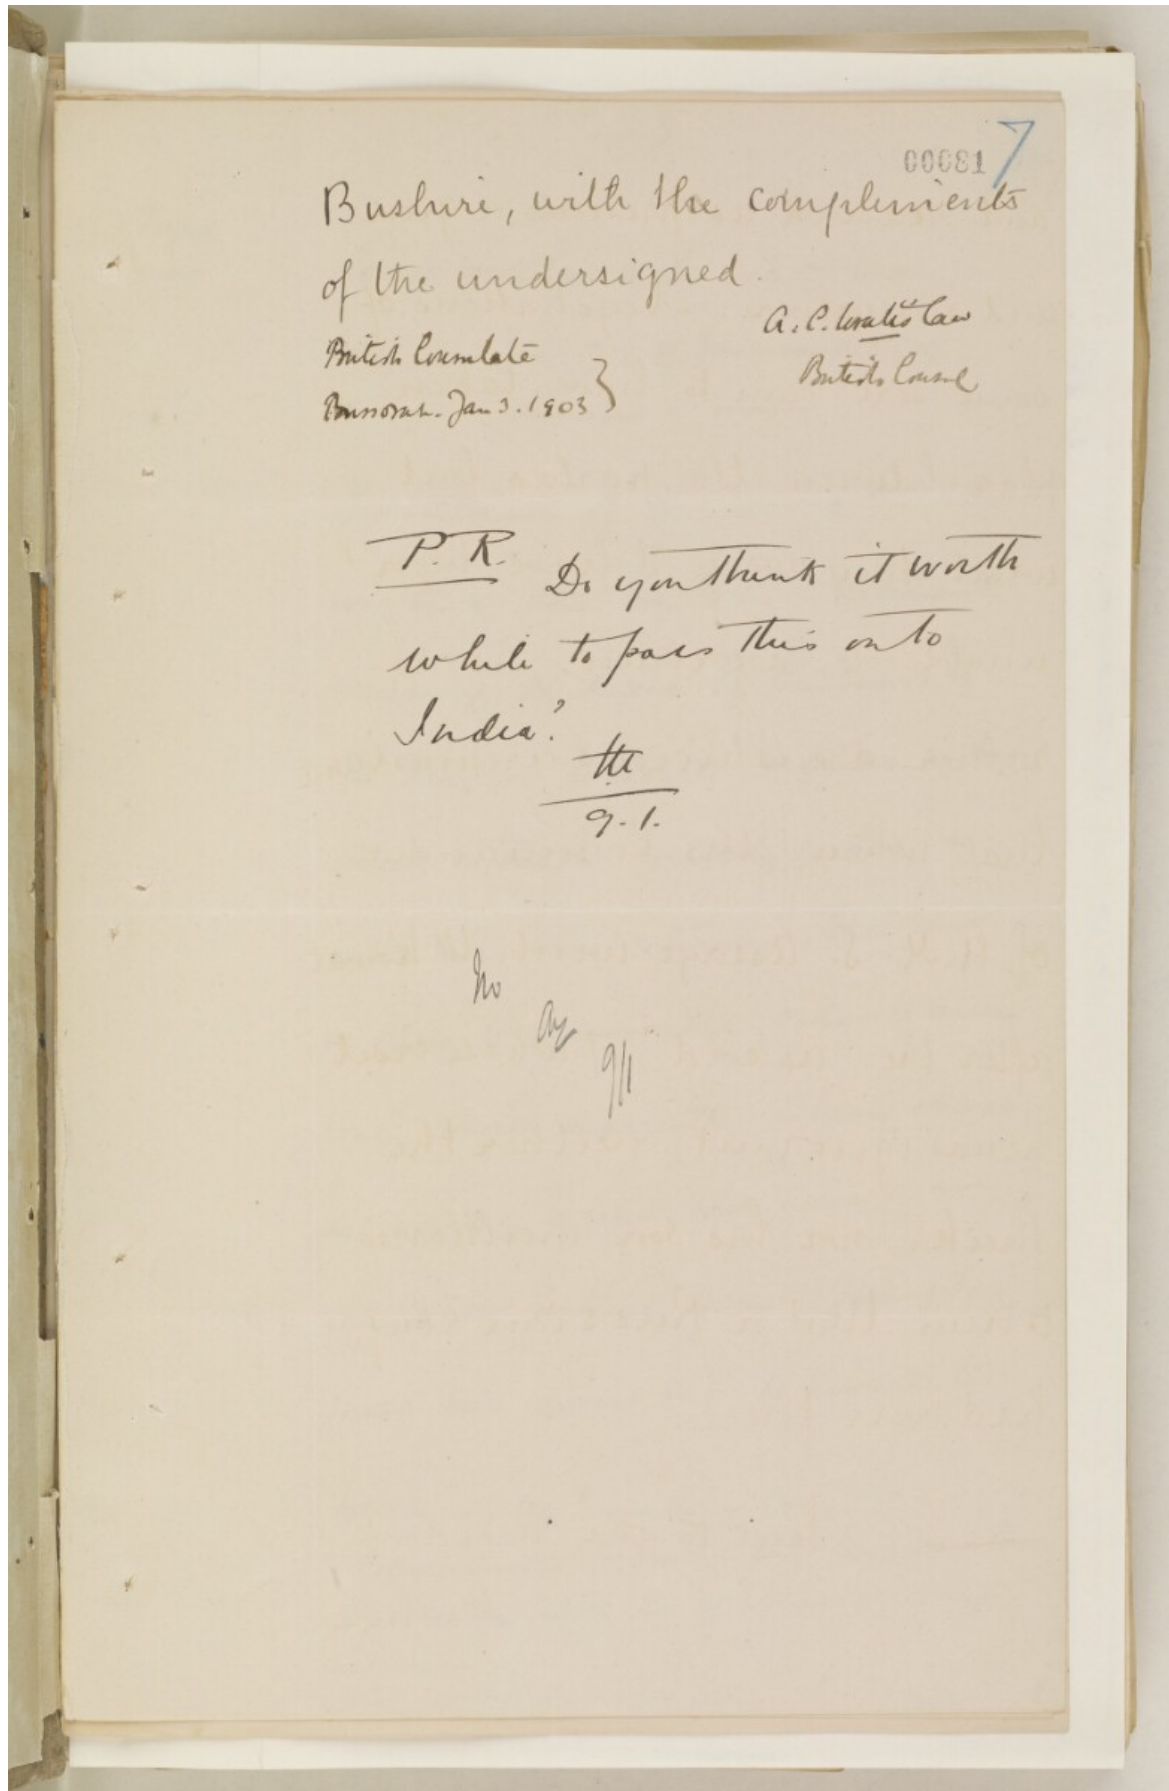 00081 7
Bushire, with the compliments
of the undersigned.
A. C. Wratislaw
British Consulate
British Consul
Bussorah. Jan 3. 1903 }
P. R. Do you think it worth
while to pass this on to
India?
9. 1.
No
9/1